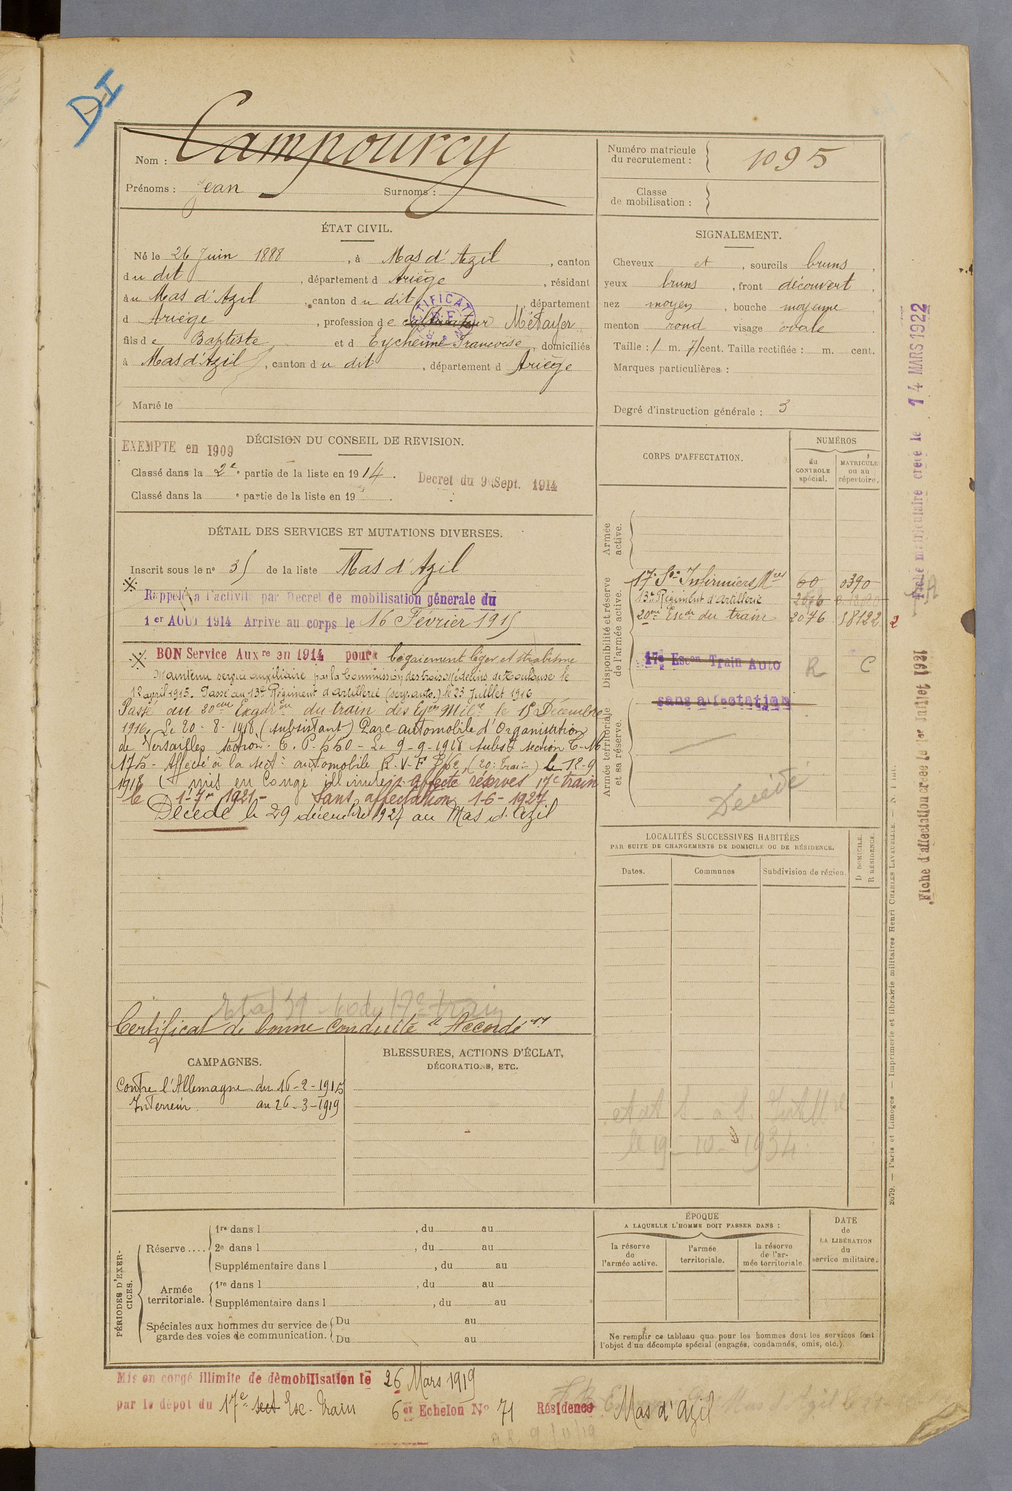 DI
Nom : Campourcy
Prénoms : Jean Surnoms :
Numéro matricule du recrutement : 1095
Classe de mobilisation :
ÉTAT CIVIL.
Né le 26 Juin 1888, à Mas d'Azil, canton
du dit, département d Ariège, résidant
au Mas d'Azil, canton du dit, département
d Ariège, profession de cultivateur Métayer
fils de Baptiste et d Eychenne Francoise, domiciliés
à Mas d'Azil, canton du dit, département d Ariège
Marié le
SIGNALEMENT.
Cheveux et, sourcils bruns,
yeux bruns, front découvert,
nez moyen, bouche moyenne
menton rond visage ovale
Taille : 1 m. 71 cent. Taille rectifiée : m. cent.
Marques particulières :
Degré d'instruction générale : 3
DÉCISION DU CONSEIL DE REVISION.
EXEMPTE en 1909
Classé dans la 2e partie de la liste en 1914.
Decret du 9 Sept. 1914
Classé dans la e partie de la liste en 19
DÉTAIL DES SERVICES ET MUTATIONS DIVERSES.
Inscrit sous le n° 35 de la liste Mas d'Azil
Rappelé à l'activité par Decret de mobilisation génerale du
1er AOUT 1914 Arrivé au corps le 16 Février 1915
BON Service Auxre en 1914 pour begaiement léger et strabisme
Maintenu service auxiliaire par la Commission des trois Médecins de Toulouse le
12 avril 1915. Passé au 13e Régiment d'Artillerie le 23 Juillet 1916
Passé au 20eme Escadron du train des Eqges Milres le 15 Decembre
1916. Le 20-8-1918 (subsistant) Parc automobile d'Organisation
de Versailles section T.P. 550 - Le 9-9-1918 subst section T-M
175 - Affecté à la sect° automobile R.V.F. (20e Train) le 18-9
1918 (mis en congé illimité) affecté réserves 17e train
le 1-7-1921 - Sans affectation 1-6-1927
Décédé le 29 décembre 1927 au Mas d'Azil
Certificat de bonne conduite "Accordé"
CORPS D'AFFECTATION.
NUMÉROS
du CONTROLE spécial.
MATRICULE ou au répertoire.
Armée active.
Disponibilité et réserve de l'armée active.
17e Son Infirmiers Mres 60 0390
13e Régiment d'Artillerie 2876
20eme Escon du train 2076 18122
17e Escon Train Auto R C
sans affectation
Armée territoriale et sa réserve.
Décédé
LOCALITÉS SUCCESSIVES HABITÉES
PAR SUITE DE CHANGEMENTS DE DOMICILE OU DE RÉSIDENCE.
Dates. Communes Subdivision de région. D. DOMICILE. R. RÉSIDENCE.
le 19-10-1934
CAMPAGNES.
Contre l'Allemagne du 16-2-1915
Intérieur au 26-3-1919
BLESSURES, ACTIONS D'ÉCLAT,
DÉCORATIONS, ETC.
PÉRIODES D'EXERCICES.
Réserve .... 1re dans l , du au
2e dans l , du au
Supplémentaire dans l , du au
Armée territoriale. 1re dans l , du au
Supplémentaire dans l , du au
Spéciales aux hommes du service de garde des voies de communication. Du au
Du au
ÉPOQUE
A LAQUELLE L'HOMME DOIT PASSER DANS :
la réserve de l'armée active.
l'armée territoriale.
la réserve de l'armée territoriale
DATE de LA LIBÉRATION du service militaire.
Ne remplir ce tableau que pour les hommes dont les services font
l'objet d'un décompte spécial (engagés, condamnés, omis, etc.)
Mis en congé illimité de démobilisation le 26 Mars 1919
par le dépot du 17e sect Esc. Train 6e Echelon N° 71 Résidence Mas d'Azil
Fiche matriculaire créée le 14 MARS 1922
Fiche d'affectation créée le 1er Juillet 1921
2079. — Paris et Limoges — Imprimerie et librairie militaires Henri CHARLES-LAVAUZELLE.